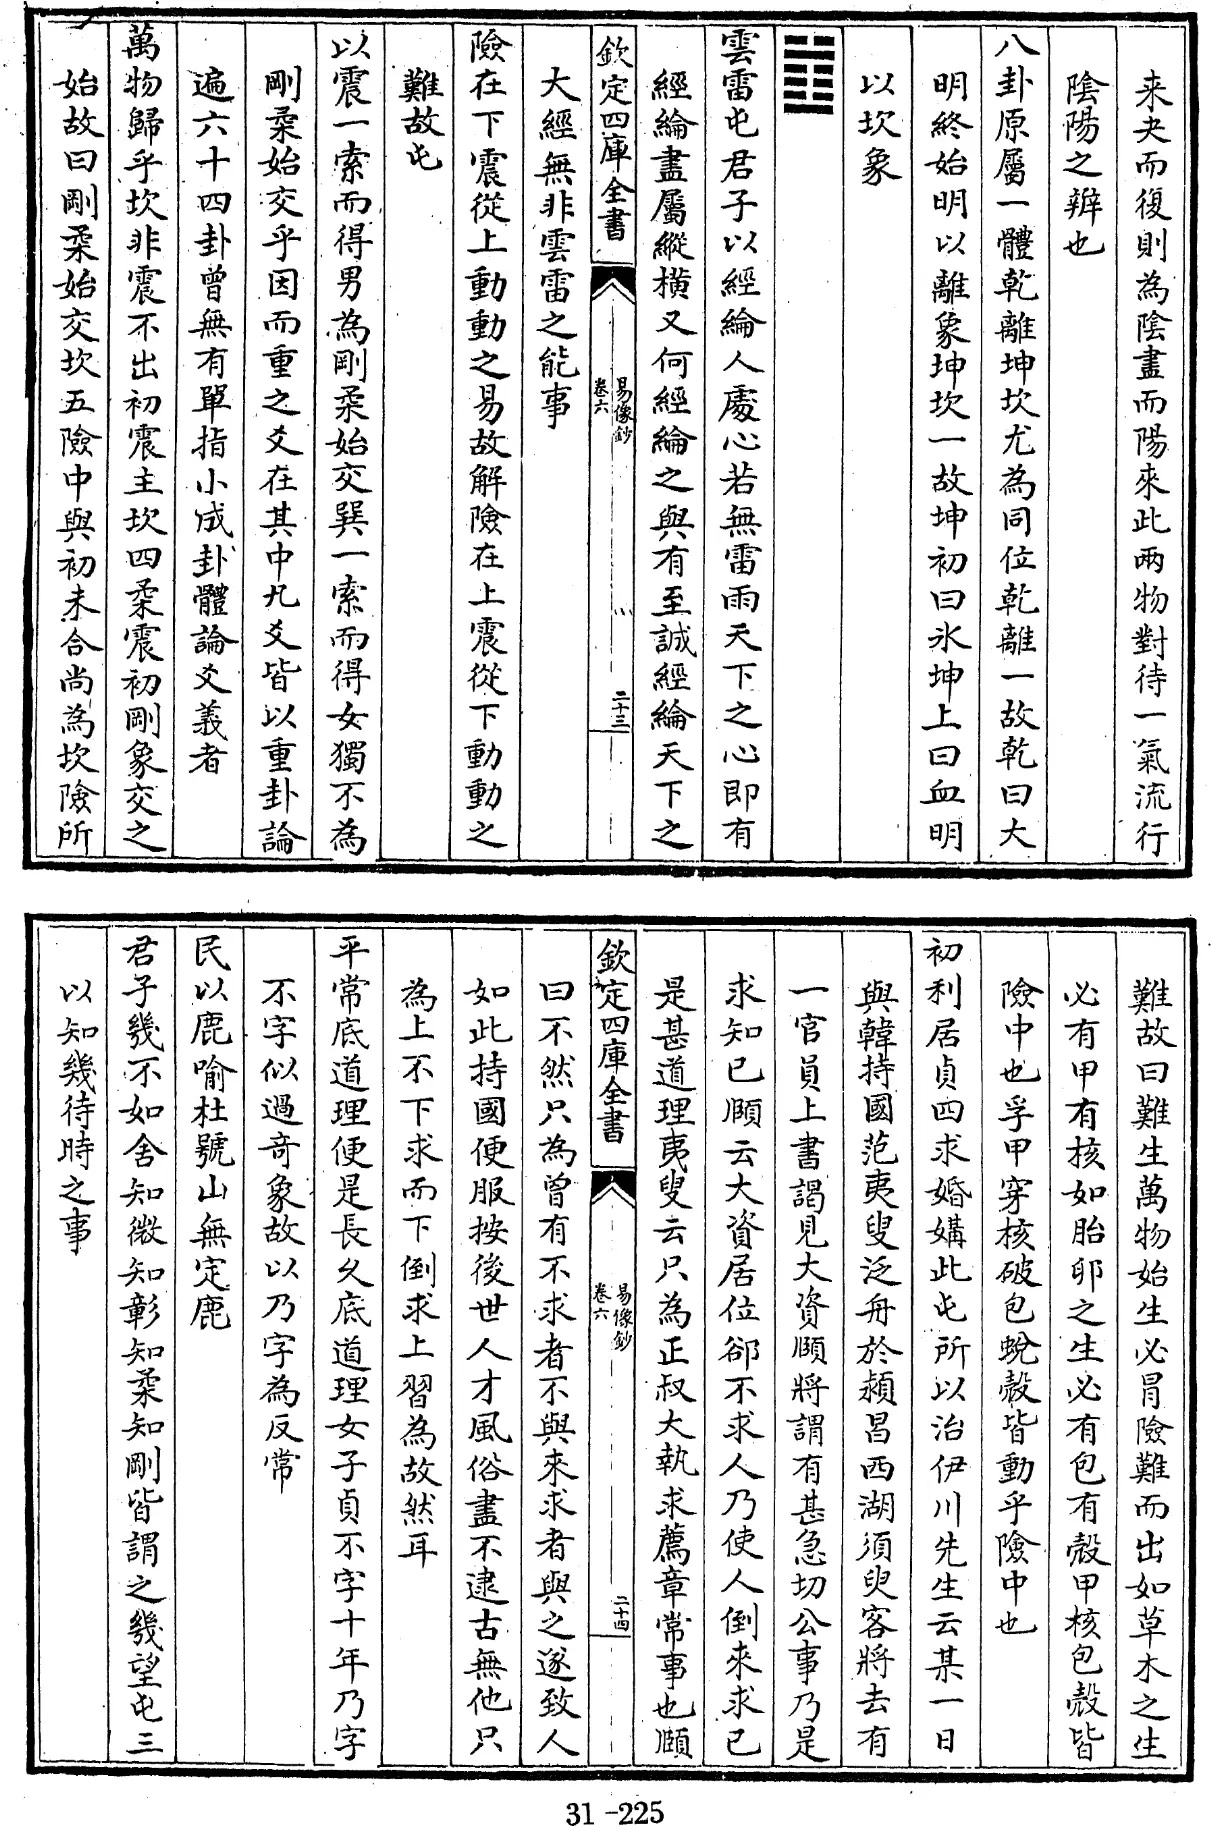 来夬而復則為陰盡而陽來此兩物對待一氣流行
陰陽之辨也
八卦原屬一體乾離坤坎尤為同位乾離一故乾曰大
明終始明以離象坤坎一故坤初曰氷坤上曰血明
以坎象
䷂
雲雷屯君子以經綸人處心若無雷雨天下之心即有
經綸盡屬縱橫又何經綸之與有至誠經綸天下之
欽定四庫全書
易像鈔
卷六
二十三
大經無非雲雷之能事
險在下震從上動動之易故解險在上震從下動動之
難故屯
以震一索而得男為剛柔始交巽一索而得女獨不為
剛柔始交乎因而重之爻在其中凡爻皆以重卦論
遍六十四卦曾無有單指小成卦體論爻義者
萬物歸乎坎非震不出初震主坎四柔震初剛象交之
始故曰剛柔始交坎五險中與初未合尚為坎險所
難故曰難生萬物始生必冒險難而出如草木之生
必有甲有核如胎卵之生必有包有殼甲核包殼皆
險中也孚甲穿核破包蛻殼皆動乎險中也
初利居貞四求婚媾此屯所以治伊川先生云某一日
與韓持國范夷叟泛舟於潁昌西湖須臾客將去有
一官員上書謁見大資頤將謂有甚急切公事乃是
求知已頤云大資居位郤不求人乃使人倒來求已
是甚道理夷叟云只為正叔大執求薦章常事也頤
欽定四庫全書
易像鈔
卷六
二十四
曰不然只為曾有不求者不與來求者與之遂致人
如此持國便服按後世人才風俗盡不逮古無他只
為上不下求而下倒求上習為故然耳
平常底道理便是長久底道理女子貞不字十年乃字
不字似過奇象故以乃字為反常
民以鹿喻杜號山無定鹿
君子幾不如舍知微知彰知柔知剛皆謂之幾望屯三
以知幾待時之事
31-225